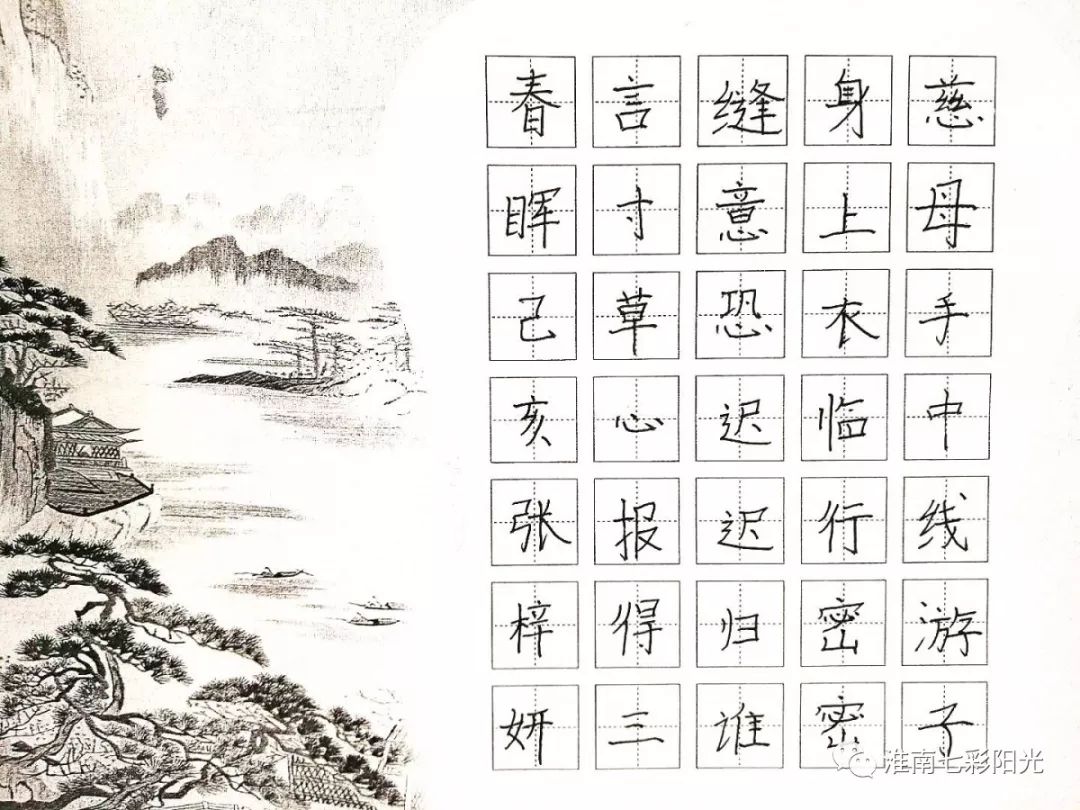 慈母手中线游子
身上衣临行密密
缝意恐迟迟归谁
言寸草心报得三
春晖己亥张梓妍
淮南七彩阳光